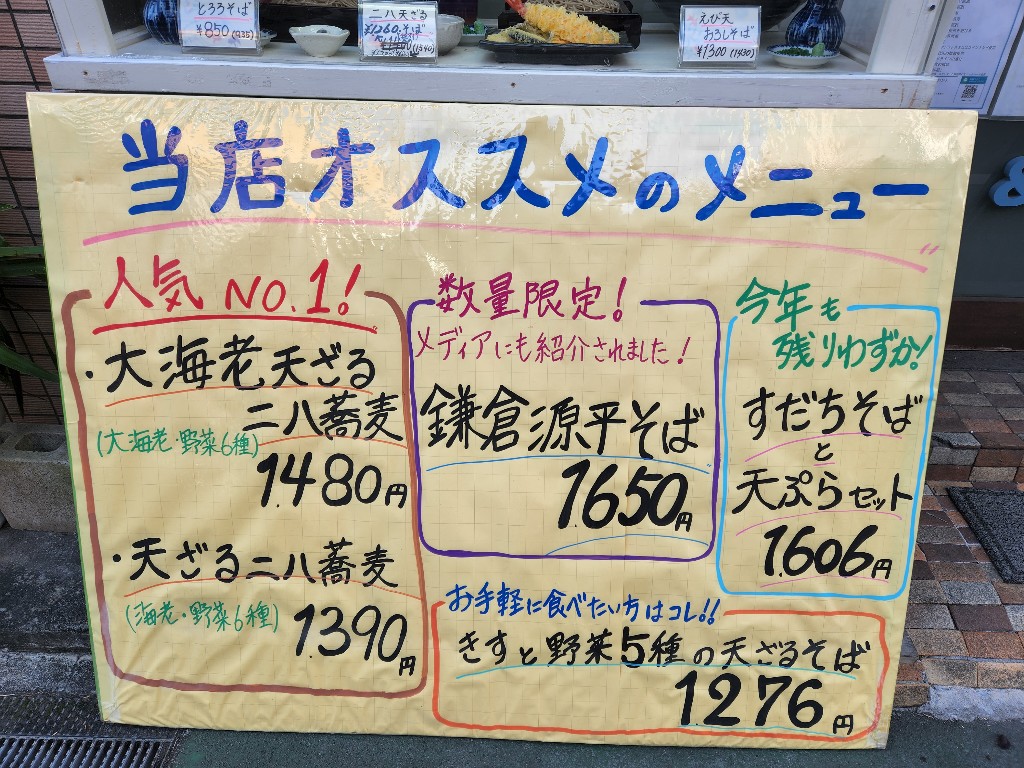 とろろそば
¥850(935)
二八天ざる
¥1260
そば
(1540)
えび天
おろしそば
¥1300(1430)
当店オススメのメニュー
人気NO.1!
・大海老天ざる
二八蕎麦
(大海老・野菜6種)
1.480円
・天ざる二八蕎麦
(海老・野菜6種)
1.390円
数量限定!
メディアにも紹介されました!
鎌倉源平そば
1.650円
今年も
残りわずか!
すだちそば
と
天ぷらセット
1.606円
お手軽に食べたい方はコレ!!
きすと野菜5種の天ざるそば
1.276円